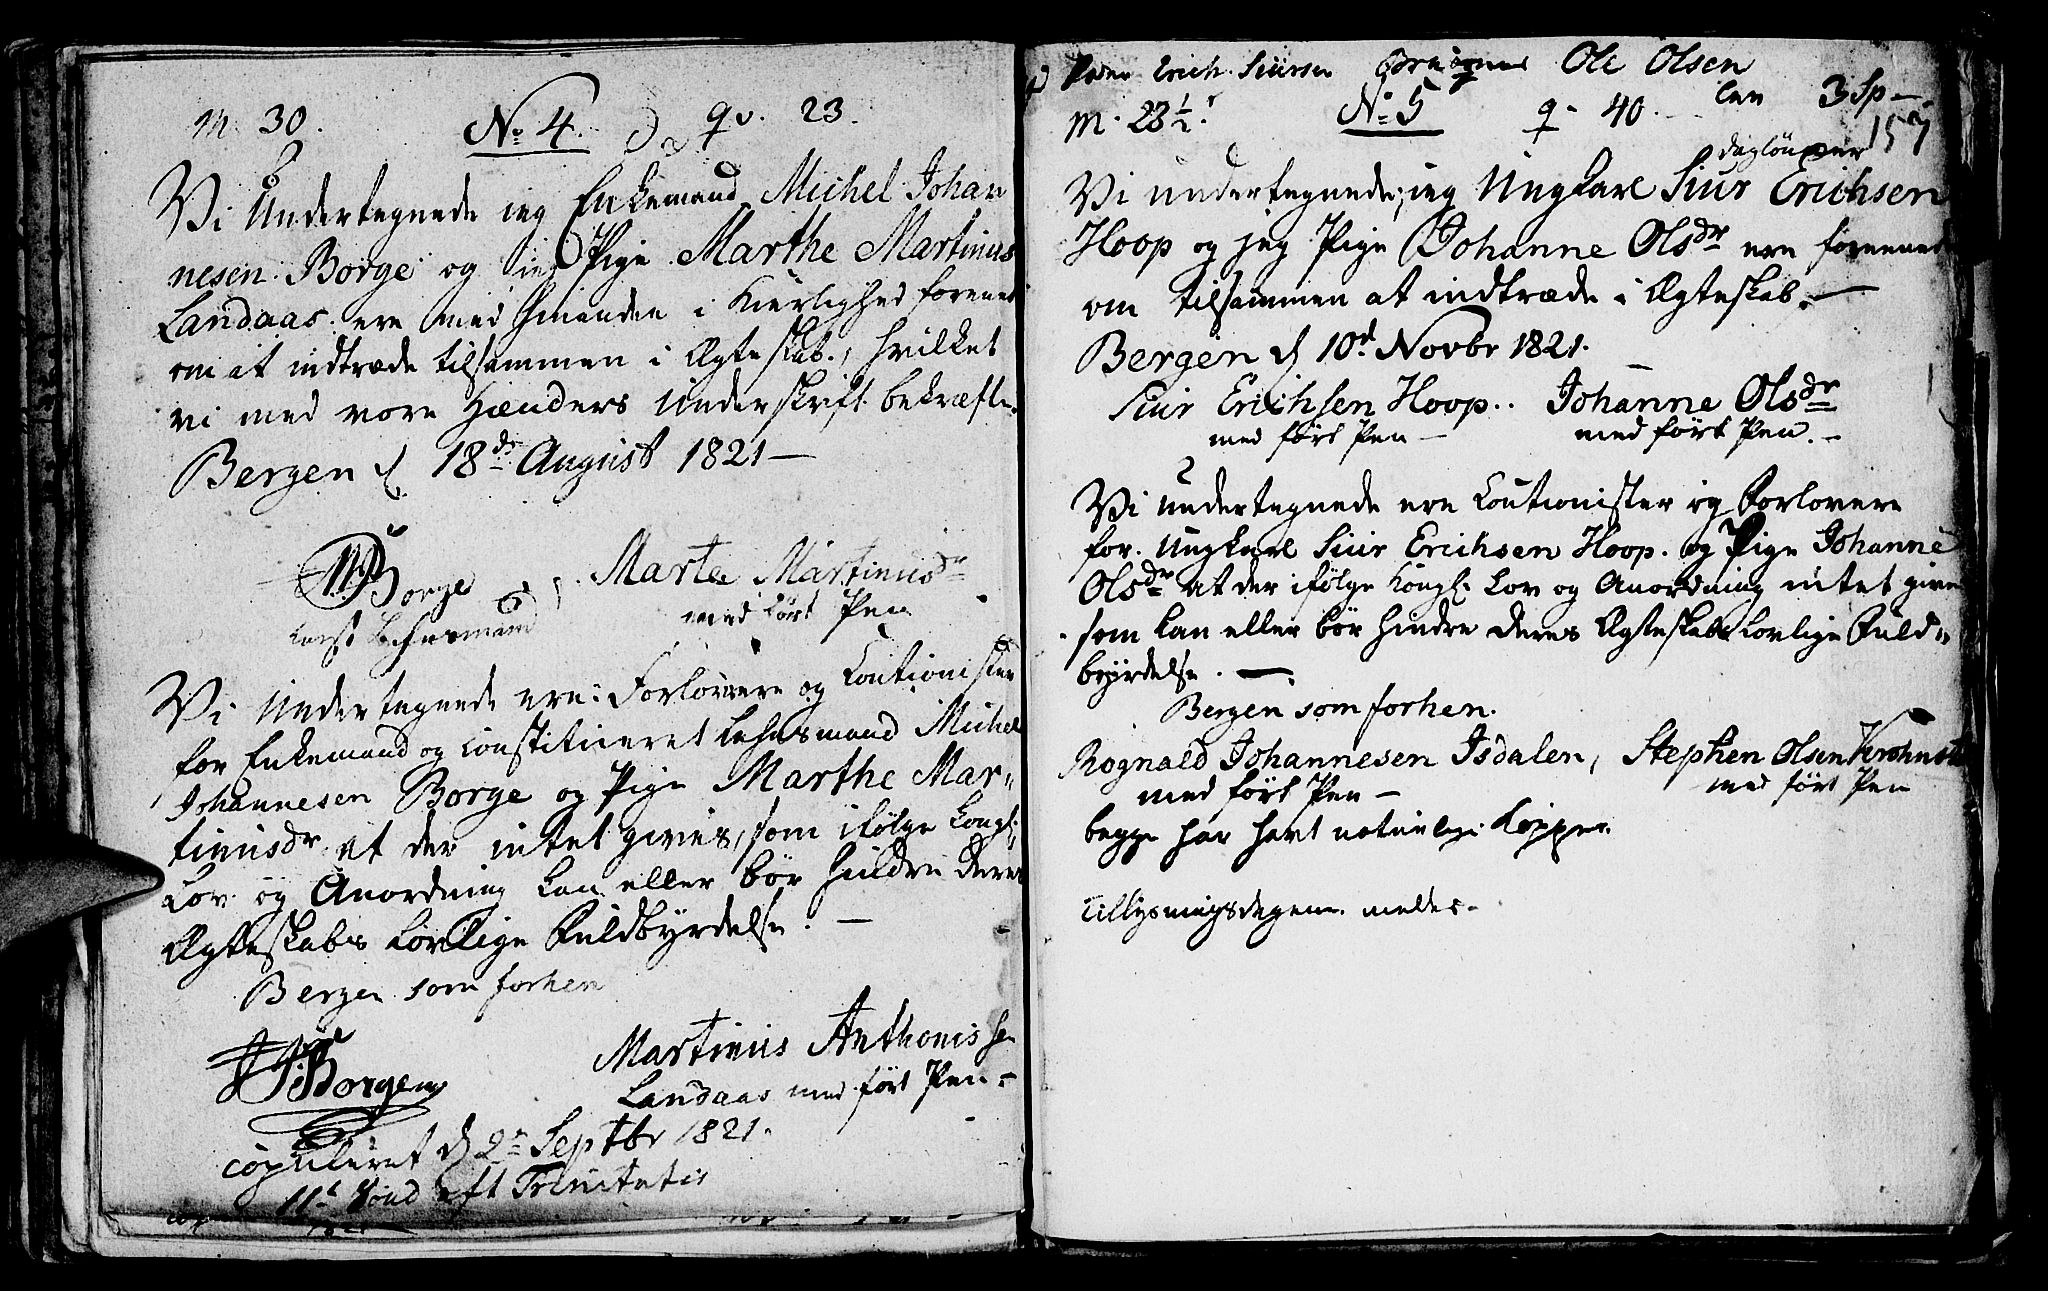 M. 30. No 4. qv. 23.
Vi Undertegnede jeg Enkemand Michel Johan
nesen Borge og jeg Pige Marthe Martinus
Landaas ere med hinanden i Kierlighed forenet
om at indtræde tilsammen i Ægteskab, hvilket
vi med vore Hænders Underskrift bekræfte.
Bergen d 18de August 1821 —
Borge Marte Martinusdr
Lehnsmand med ført Pen
Vi Undertegnede ere Forlovere og Coutionister
for Enkemand og Constitueret Lehnsmand Michel
Johannesen Borge og Pige Marthe Mar-
tinusdr at der intet gives, som ifølge Kongl:
Lov og Anordning kan eller bør hindre deres
Ægteskabs Lovlige Fuldbyrdelse. —
Bergen som forhen
Borgen Martinus Anthonissen
Landaas med ført Pen -
copuleret d 2n Septbr 1821.
11t Sönd eft Trinitatis
Erich Siursen Ole Olsen
M. 23 1/2. No 5 q - 40. 3 Sp -
157
dagløner
Vi undertegnede, jeg Ungkarl Siur Erichsen
Hoop og jeg Pige Johanne Olsdr ere forenede
om tilsammen at indtræde i Ægteskab. —
Bergen d 10d Novbr 1821.
Siur Erichsen Hoop.. Johanne Olsdr
med ført Pen - med ført Pen. -
Vi undertegnede ere Coutionister og Forlovere
for Ungkarl Siur Erichsen Hoop. og Pige Johanne
Olsdr at der ifølge Kongl. Lov og Anordning intet gives
som kan eller bør hindre deres Ægteskabs Lovlige Fuld-
byrdelse. —
Bergen som forhen.
Rognald Johannesen Isdalen, Stephen Olsen
med ført Pen - med ført Pen
begge har havt naturlige Kopper.
Tillysningsdagene meldes -